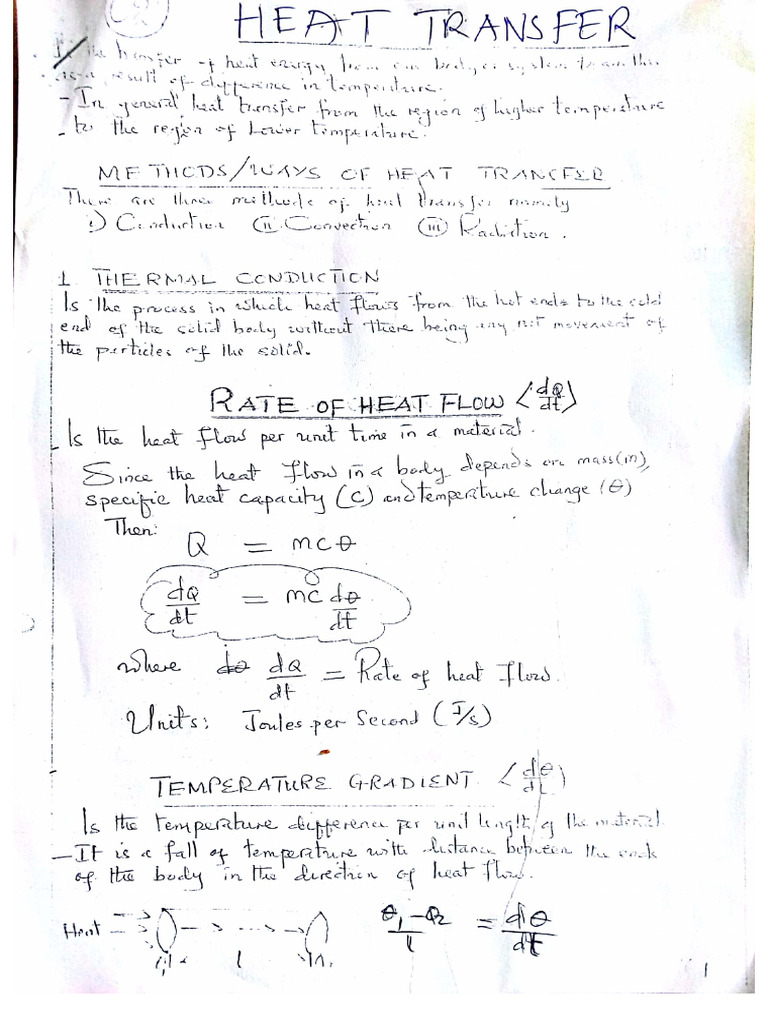 HEAT TRANSFER
Is the transfer of heat energy from one body or system to another
as a result of difference in temperature.
- In general heat transfer from the region of higher temperature
- to the region of Lower temperature.
METHODS/WAYS OF HEAT TRANSFER
There are three methods of heat transfer namely
i) Conduction (ii) Convection (iii) Radiation.
1. THERMAL CONDUCTION
Is the process in which heat flows from the hot ends to the cold
end of the solid body without there being any net movement of
the particles of the solid.
RATE OF HEAT FLOW <dQ/dt>
- Is the heat flow per unit time in a material.
Since the heat flow in a body depends on mass(m),
specific heat capacity (C) and temperature change (θ)
Then:
Q = mcθ
dQ/dt = mc dθ/dt
where dQ/dt = Rate of heat flow.
Units: Joules per Second (J/s)
TEMPERATURE GRADIENT <dθ/dL>
Is the temperature difference per unit length of the material
- It is a fall of temperature with distance between the ends
of the body in the direction of heat flow.
Heat
l
θ1 - θ2/l = dθ/dt
1